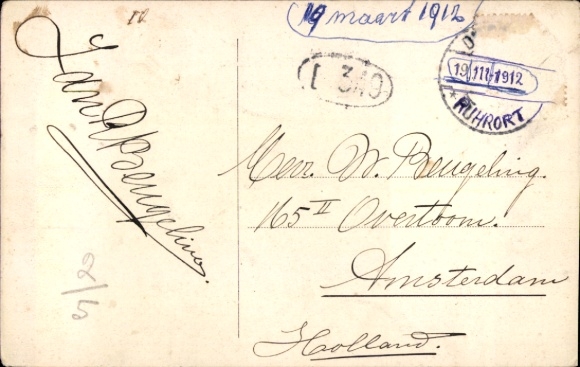 19 maart 1912
19 III 1912
RUHRORT
Jan Beugeling.
Mevr. W. Beugeling.
165 II Overtoom.
Amsterdam
Holland.